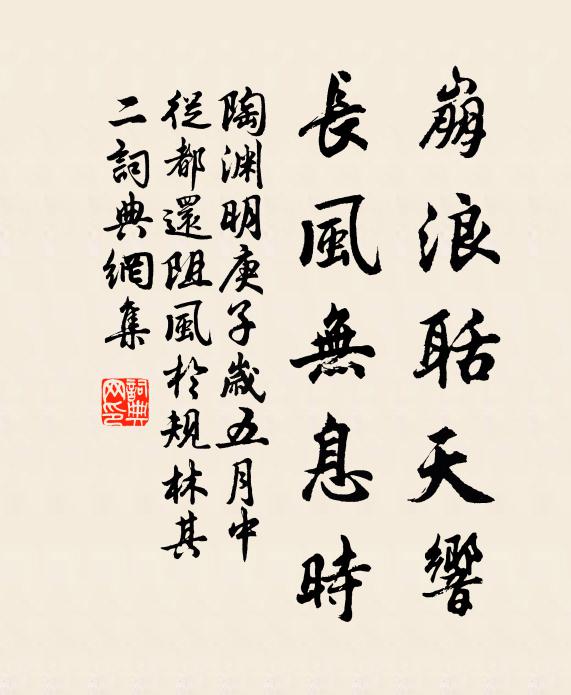 崩浪聒天響
長風無息時
陶淵明庚子歲五月中
從都還阻風於規林其
二詞典網集
詞典网印